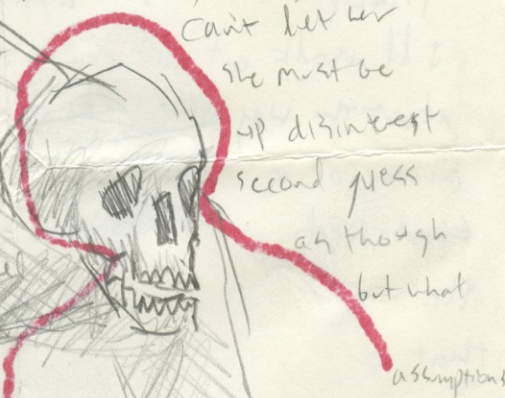 Can't let her
she must be
up disinterest
second guess
as though
but what
assumptions